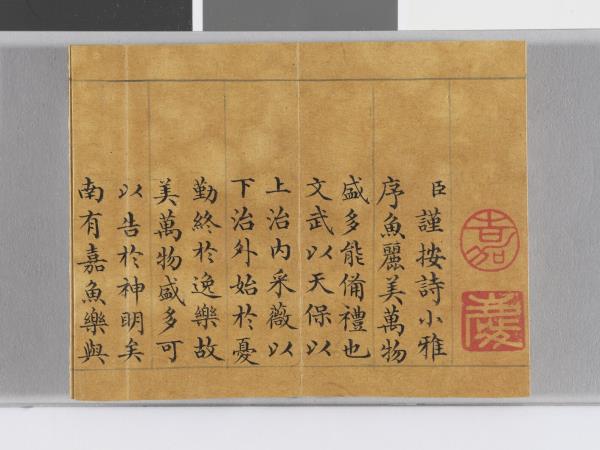 臣謹按詩小雅
序魚麗美萬物
盛多能備禮也
文武以天保以
上治內采薇以
下治外始於憂
勤終於逸樂故
美萬物盛多可
以告於神明矣
南有嘉魚樂與